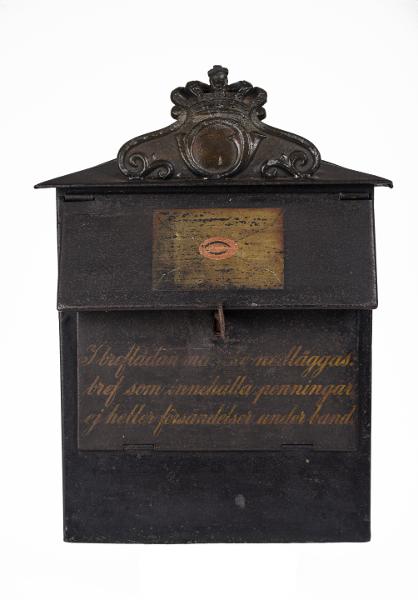 I breflådan må ej nedläggas.
bref som innehålla penningar
ej heller försändelser under band.